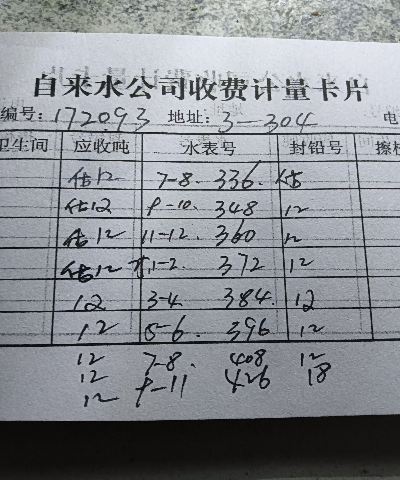 自来水公司收费计量卡片
编号: 172093 地址: 3-304 电
卫生间 应收吨 水表号 封铅号 擦
估12 7-8. 336. 估
估12 9-10. 348 12
估12 11-12. 360 12
估12 1-2. 372 12
12 3-4 384. 12
12 5-6. 396 12
12 7-8. 408 12
12 9-11 426 18
12